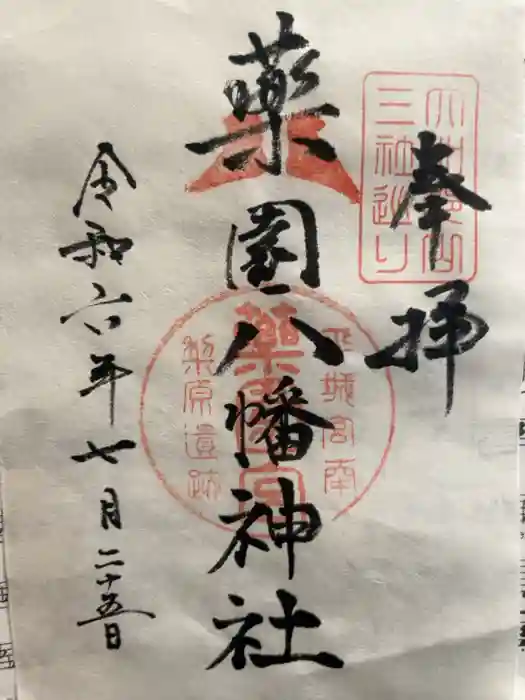 奉拝
三社巡り
薬園八幡神社
平城宮南
薬園宮
梨原遺跡
令和六年七月二十五日